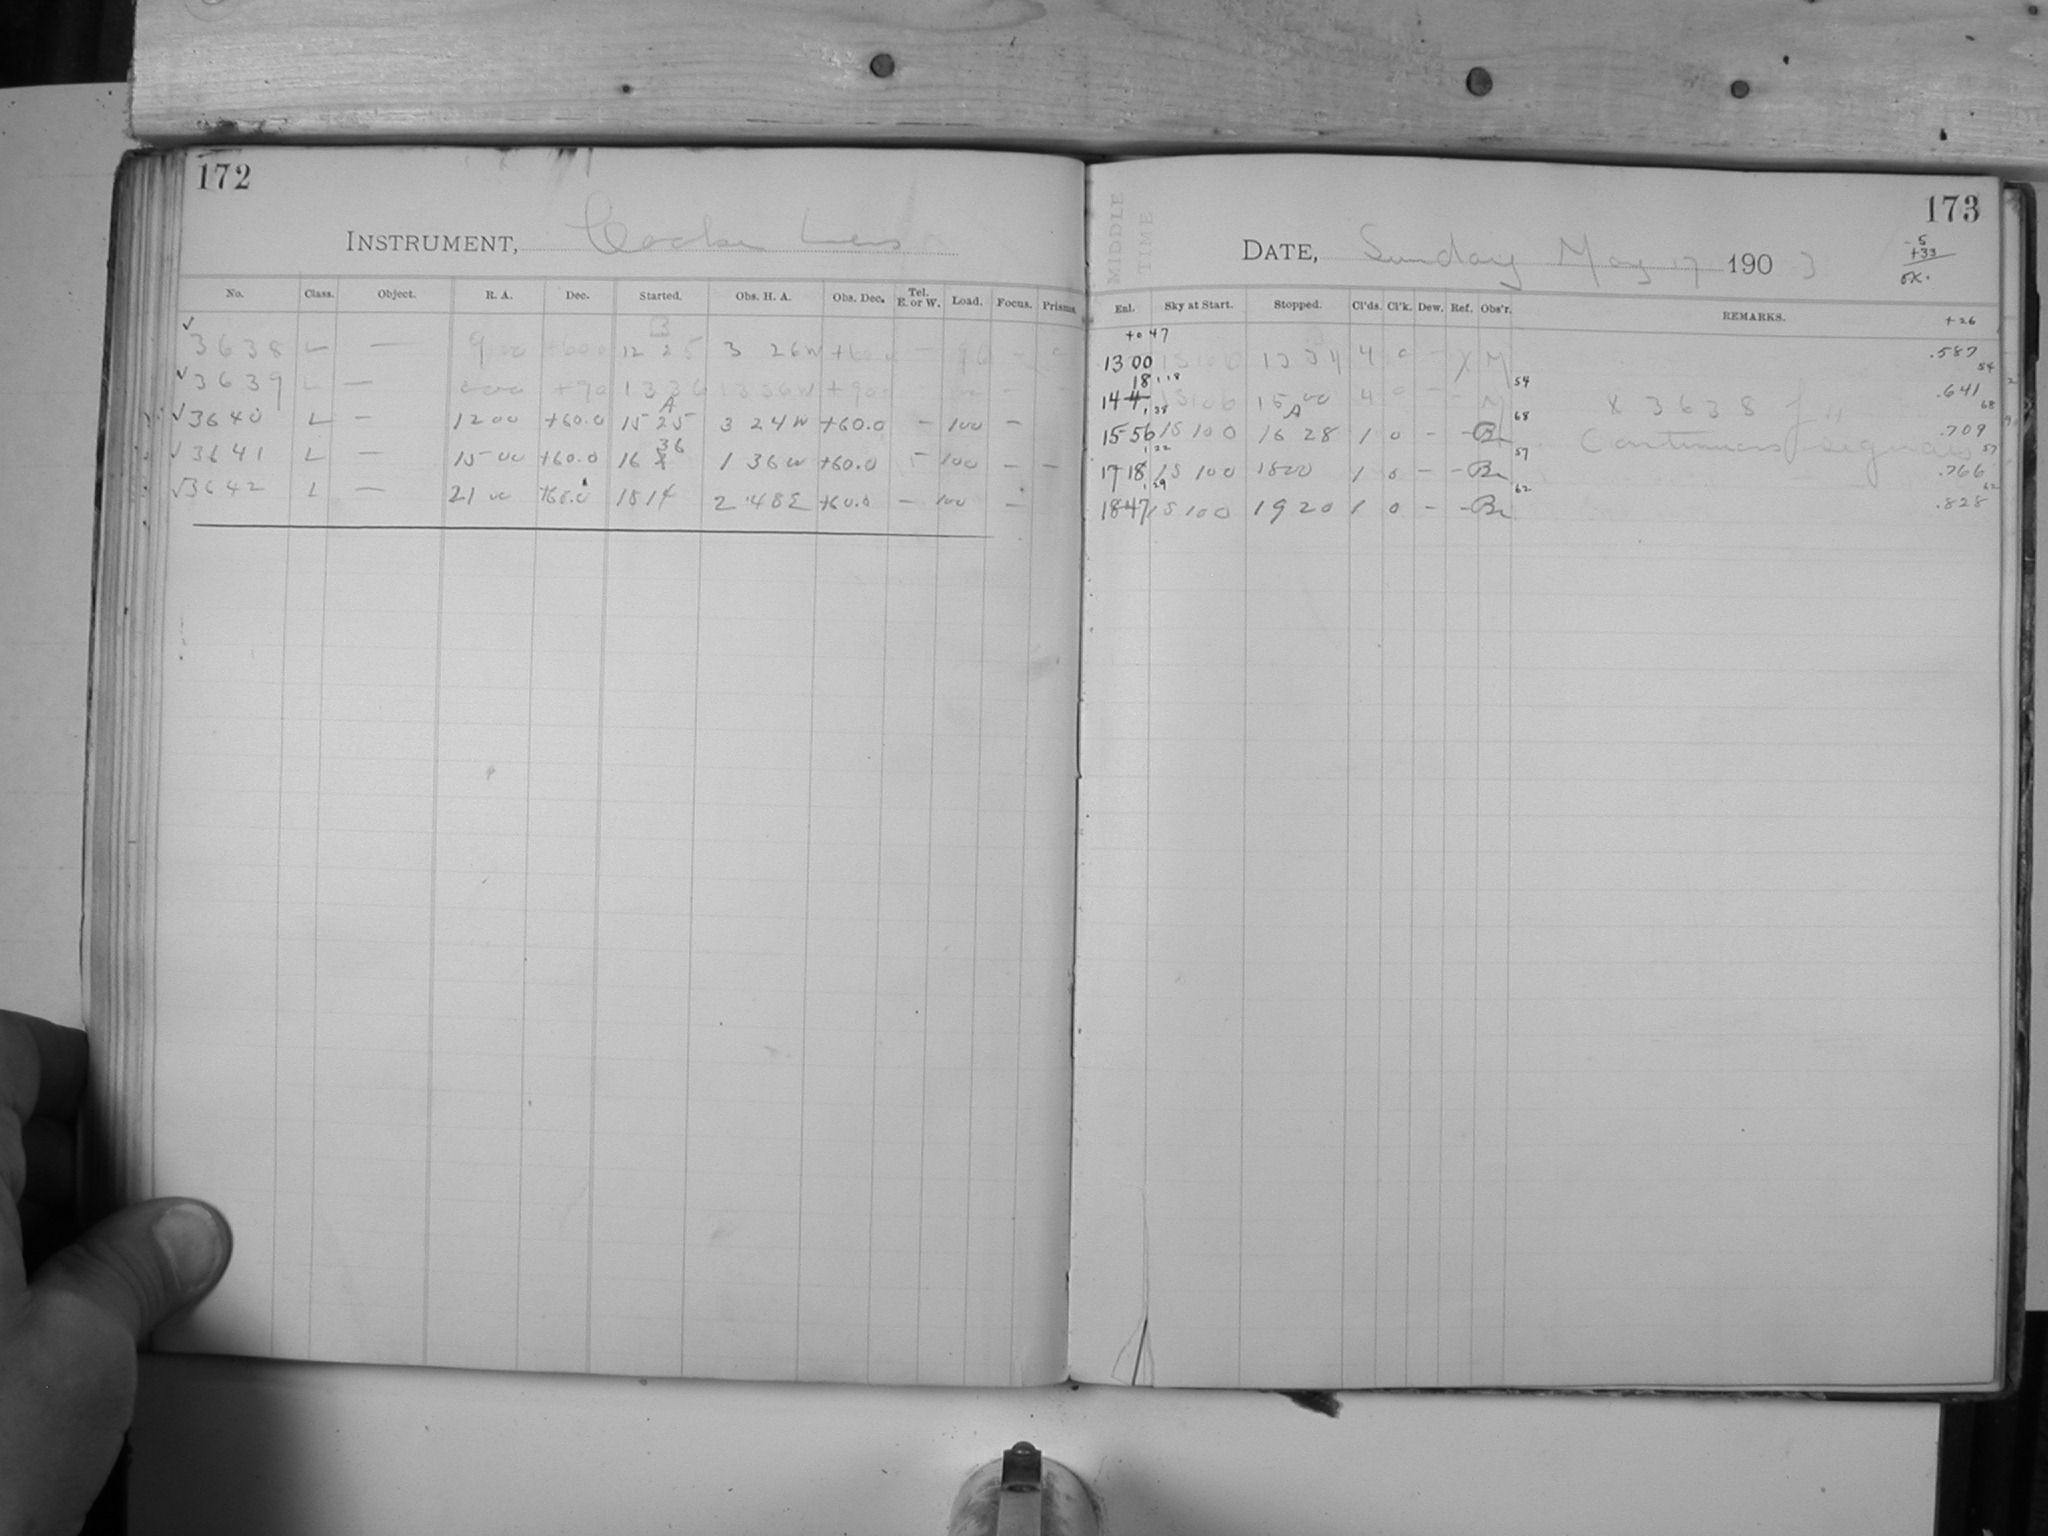 172
INSTRUMENT, Cooke Lens
No. Class. Object. R. A. Dec. Started. Obs. H. A. Obs. Dec. Tel. E. or W. Load. Focus. Prisms.
✓ 3638 L — 9 00 +60.0 12 25 3 26 W +60.0 — 96 —
✓ 3639 L — +90 13 36 13 36 W +90.0 — —
✓ 3640 L — 12 00 +60.0 15 25 A 3 24 W +60.0 — 100 —
✓ 3641 L — 15 00 +60.0 16 36 1 36 W +60.0 100 — —
✓ 3642 L — 21 00 +60.0 18 14 2 48 E +60.0 — 100 —
173
MIDDLE TIME
DATE, Sunday May 17 1903
-5
+33
Ex.
Enl. Sky at Start. Stopped. Cl'ds. Cl'k. Dew. Ref. Obs'r. REMARKS. +26
+0 47
13 00 1 3 34 4 0 — X M .587
54
18 1 18
14 4 15 00 4 0 — — M 54 X 3638 .641
68
1 38
15 56 15 100 A 16 28 1 0 — — Br 68 Continuous signals .709
57
1 22
17 18 15 100 18 00 1 0 — — Br 57 .766
62
1 29
18 47 15 100 19 20 1 0 — — Br 62 .828